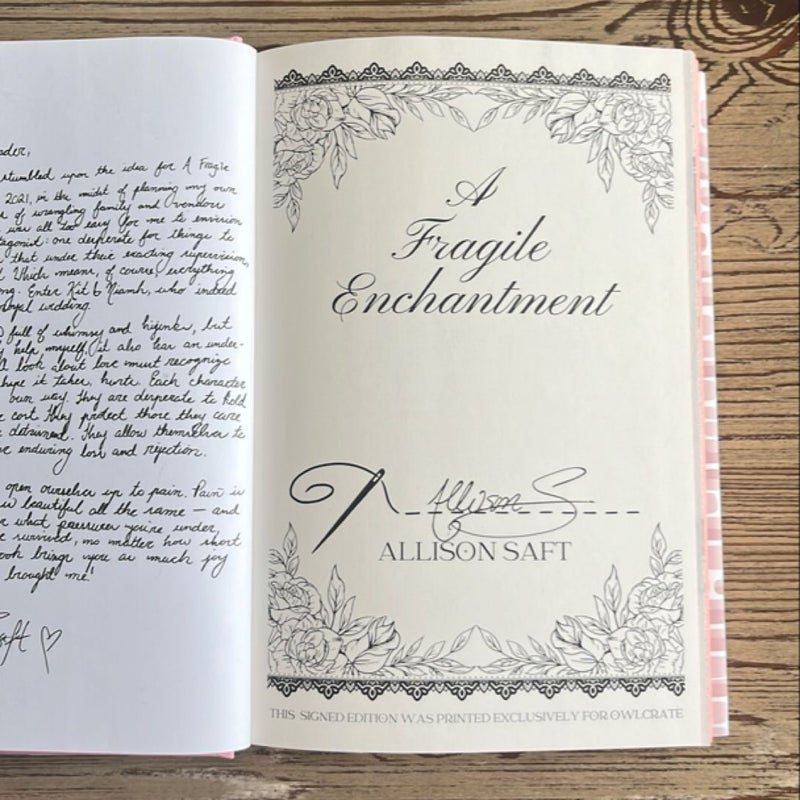 ader,
stumbled upon the idea for A Fragile
2021, in the midst of planning my own
of wrangling family and vendors
was all too easy for me to envision
tagonist: one desperate for things to
that under their exacting supervision,
Which means, of course, everything
Enter Kit & Niamh, who indeed
royal wedding.
full of whimsy and hijinks, but
help myself, it also has an under-
A book about love must recognize
shape it takes, hurts. Each character
own way. They are desperate to hold
cost. They protect those they care
detriment. They allow themselves to
enduring loss and rejection.
open ourselves up to pain. Pain is
is beautiful all the same — and
what pressures you're under,
survived, no matter how short
book brings you as much joy
brought me!
Saft
A
Fragile
Enchantment
Allison S
ALLISON SAFT
THIS SIGNED EDITION WAS PRINTED EXCLUSIVELY FOR OWLCRATE